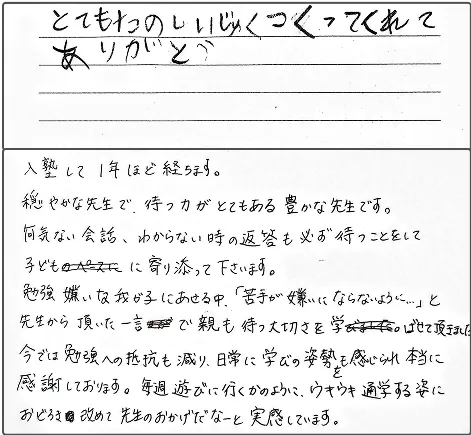 とてもたのしいじゅくつくってくれて
ありがとう
入塾して1年ほど経ちます。
穏やかな先生で、待つ力がとてもある豊かな先生です。
何気ない会話、わからない時の返答も必ず待つことをして
子どもに寄り添って下さいます。
勉強嫌いな我が子にあせる中、「苦手が嫌いにならないように…」と
先生から頂いた一言で親も待つ大切さを学ばせて頂きました
今では勉強への抵抗も減り、日常に学びの姿勢も感じられ本当に
感謝しております。毎週遊びに行くかのように、ウキウキ通学する姿に
おどろき改めて先生のおかげだなーと実感しています。